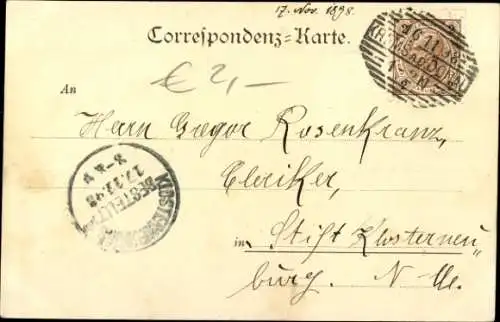 17. Nov. 1898.
Correspondenz=Karte.
16.11.98
KREMS A.D. DONAU
€ 2,-
An
Herrn Gregor Rosenkranz,
Cleriker,
KLOSTERNEUBURG
BESTELLT
17.11.98
8-9.V
in Stift Klosterneu
burg. N. Oe.